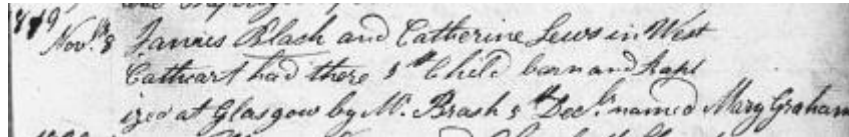 1849
Novr. 8 James Black and Catherine Lews in West
Cathcart had there 8th Child born and bapt
ized at Glasgow by Mr. Brash 5th Decr. named Mary Graham